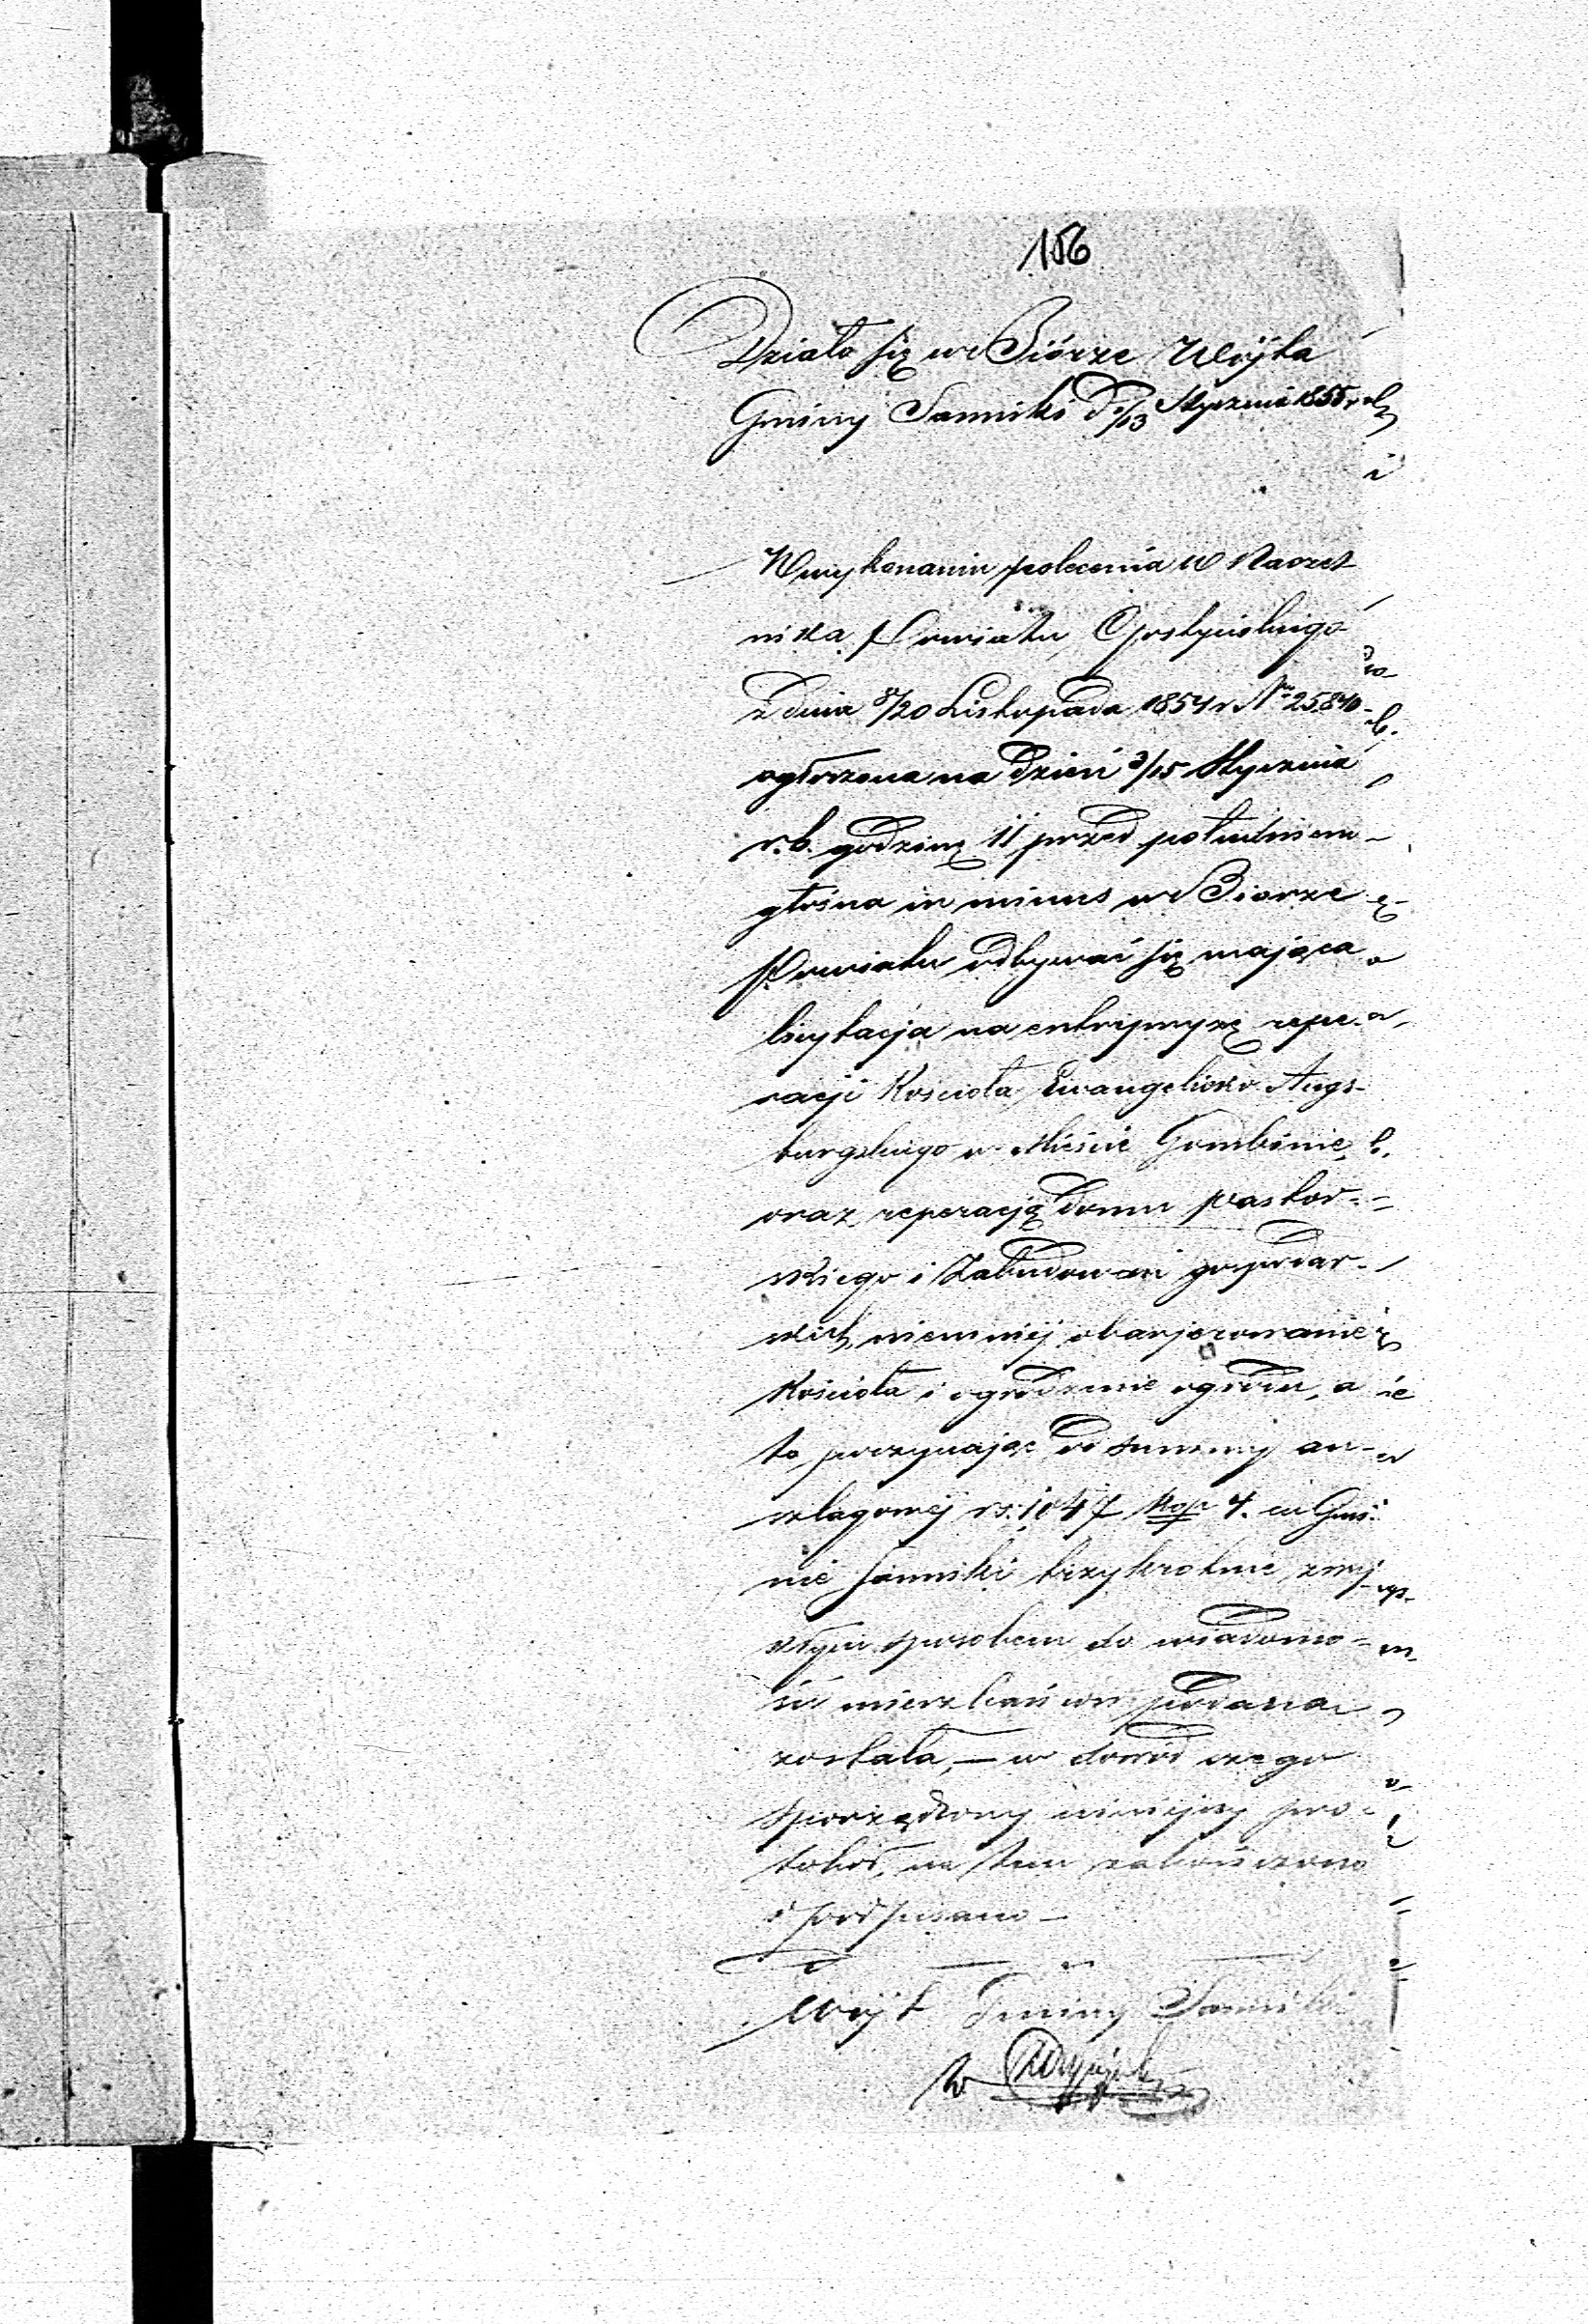 156
Działo się w Biórze Wójta
Gminy Sanniki d 1/13 Stycznia 1855 r
W wykonaniu polecenia W Naczel
nika Powiatu Gostyńskiego
z dnia 8/20 Listopada 1854 r. Nr 25840
ogłoszona na dzień 3/15 Stycznia
r. b. godzinę 11 przed południem
głośna in minus w Biorze
Powiatu odbywać się mająca
licytacja na entrepryzę repe-
racji Kościoła Ewangelicko Augs-
burgskiego w Mieście Gombinie,
oraz reperacją domu pastor-
skiego i Zabudowań gospodar-
skich, niemniej obarjerowanie
Kościoła i ogrodzenie ogrodu, a
to poczynając od summy an-
szlagowej rs. 1047 kop 4. w Gmi-
nie Sanniki trzykrotnie zwy-
kłym sposobem do wiadomo-
ści mieszkańców podana
została, — w dowód czego
sporządzony niniejszy pro-
tokół, na tem zakończono
i podpisano —
Wójt Gminy Sanniki